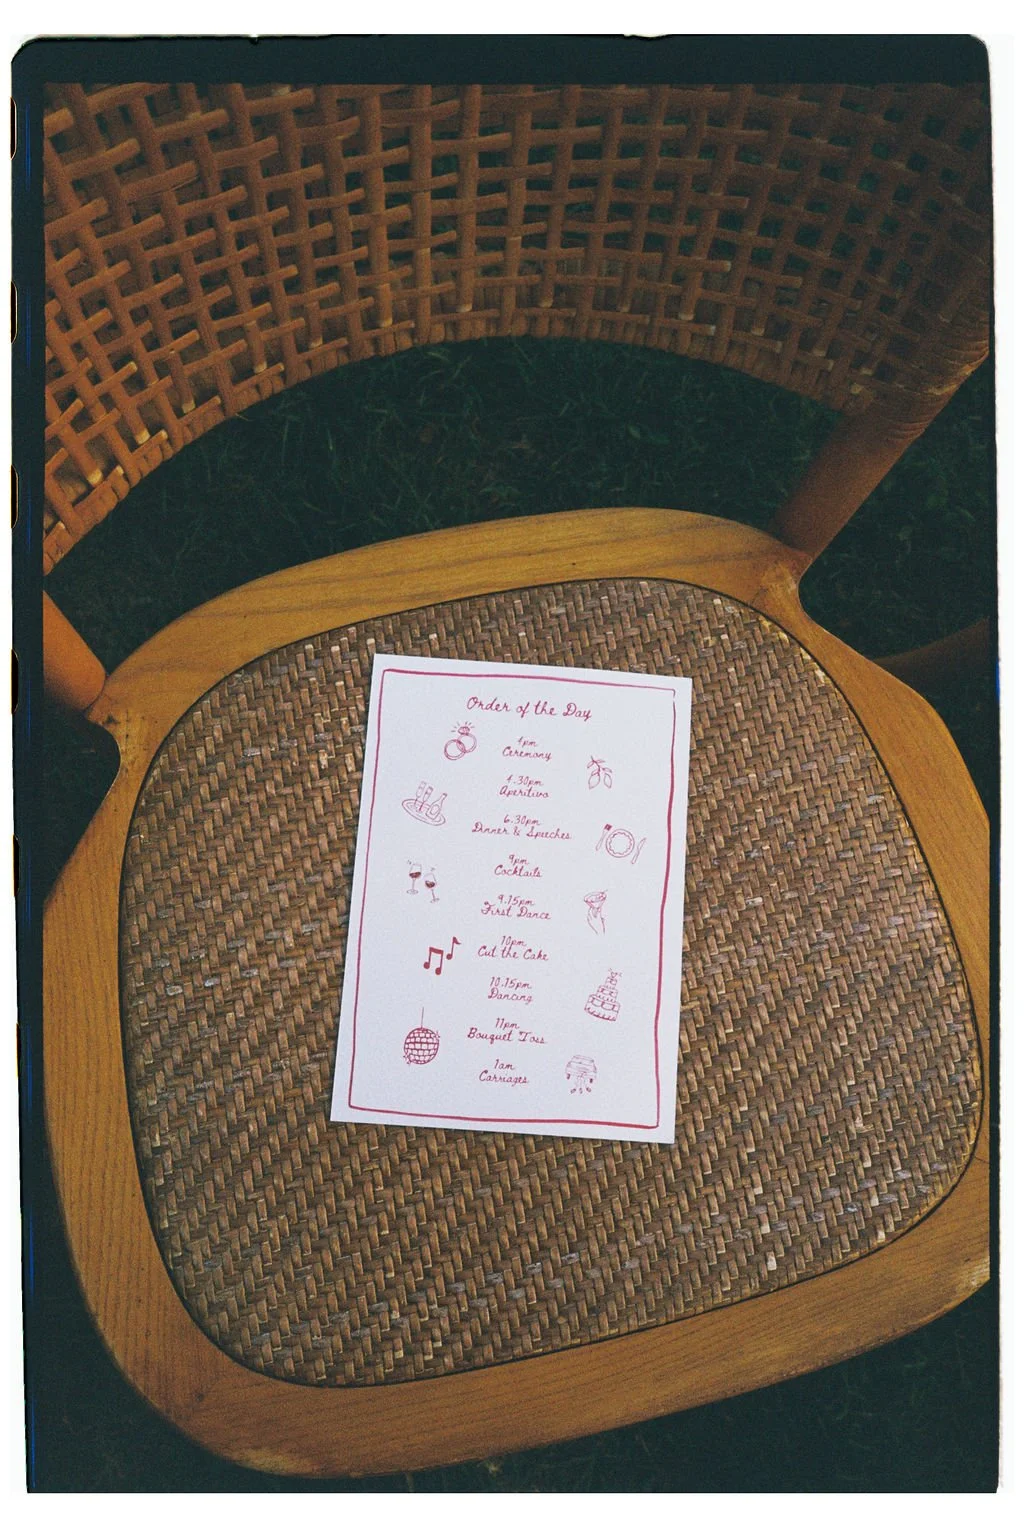 Order of the Day
4pm
Ceremony
4.30pm
Aperitivo
6.30pm
Dinner & Speeches
9pm
Cocktails
9.15pm
First Dance
10pm
Cut the Cake
10.15pm
Dancing
11pm
Bouquet Toss
1am
Carriages